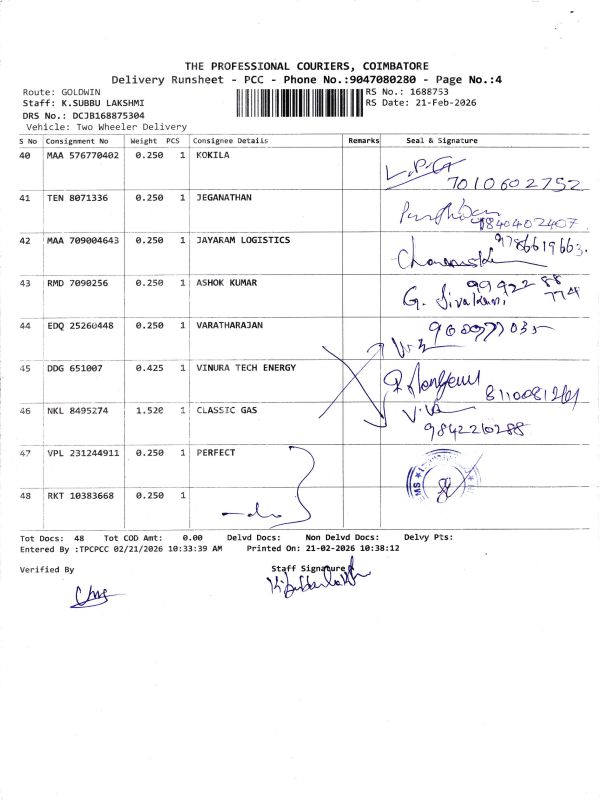 THE PROFESSIONAL COURIERS, COIMBATORE
Delivery Runsheet - PCC - Phone No.:9047080280 - Page No.:4
Route: GOLDWIN RS No.: 1688753
Staff: K.SUBBU LAKSHMI RS Date: 21-Feb-2026
DRS No.: DCJB168875304
Vehicle: Two Wheeler Delivery
S No Consignment No Weight PCS Consignee Details Remarks Seal & Signature
40 MAA 576770402 0.250 1 KOKILA
7010602752
41 TEN 8071336 0.250 1 JEGANATHAN
9840402407
42 MAA 709004643 0.250 1 JAYARAM LOGISTICS 9786619663.
43 RMD 7090256 0.250 1 ASHOK KUMAR 99922 88
G. 774
44 EDQ 25260448 0.250 1 VARATHARAJAN
45 DDG 651007 0.425 1 VINURA TECH ENERGY
46 NKL 8495274 1.520 1 CLASSIC GAS
9842210288
47 VPL 231244911 0.250 1 PERFECT
48 RKT 10383668 0.250 1
Tot Docs: 48 Tot COD Amt: 0.00 Delvd Docs: Non Delvd Docs: Delvy Pts:
Entered By :TPCPCC 02/21/2026 10:33:39 AM Printed On: 21-02-2026 10:38:12
Verified By Staff Signature